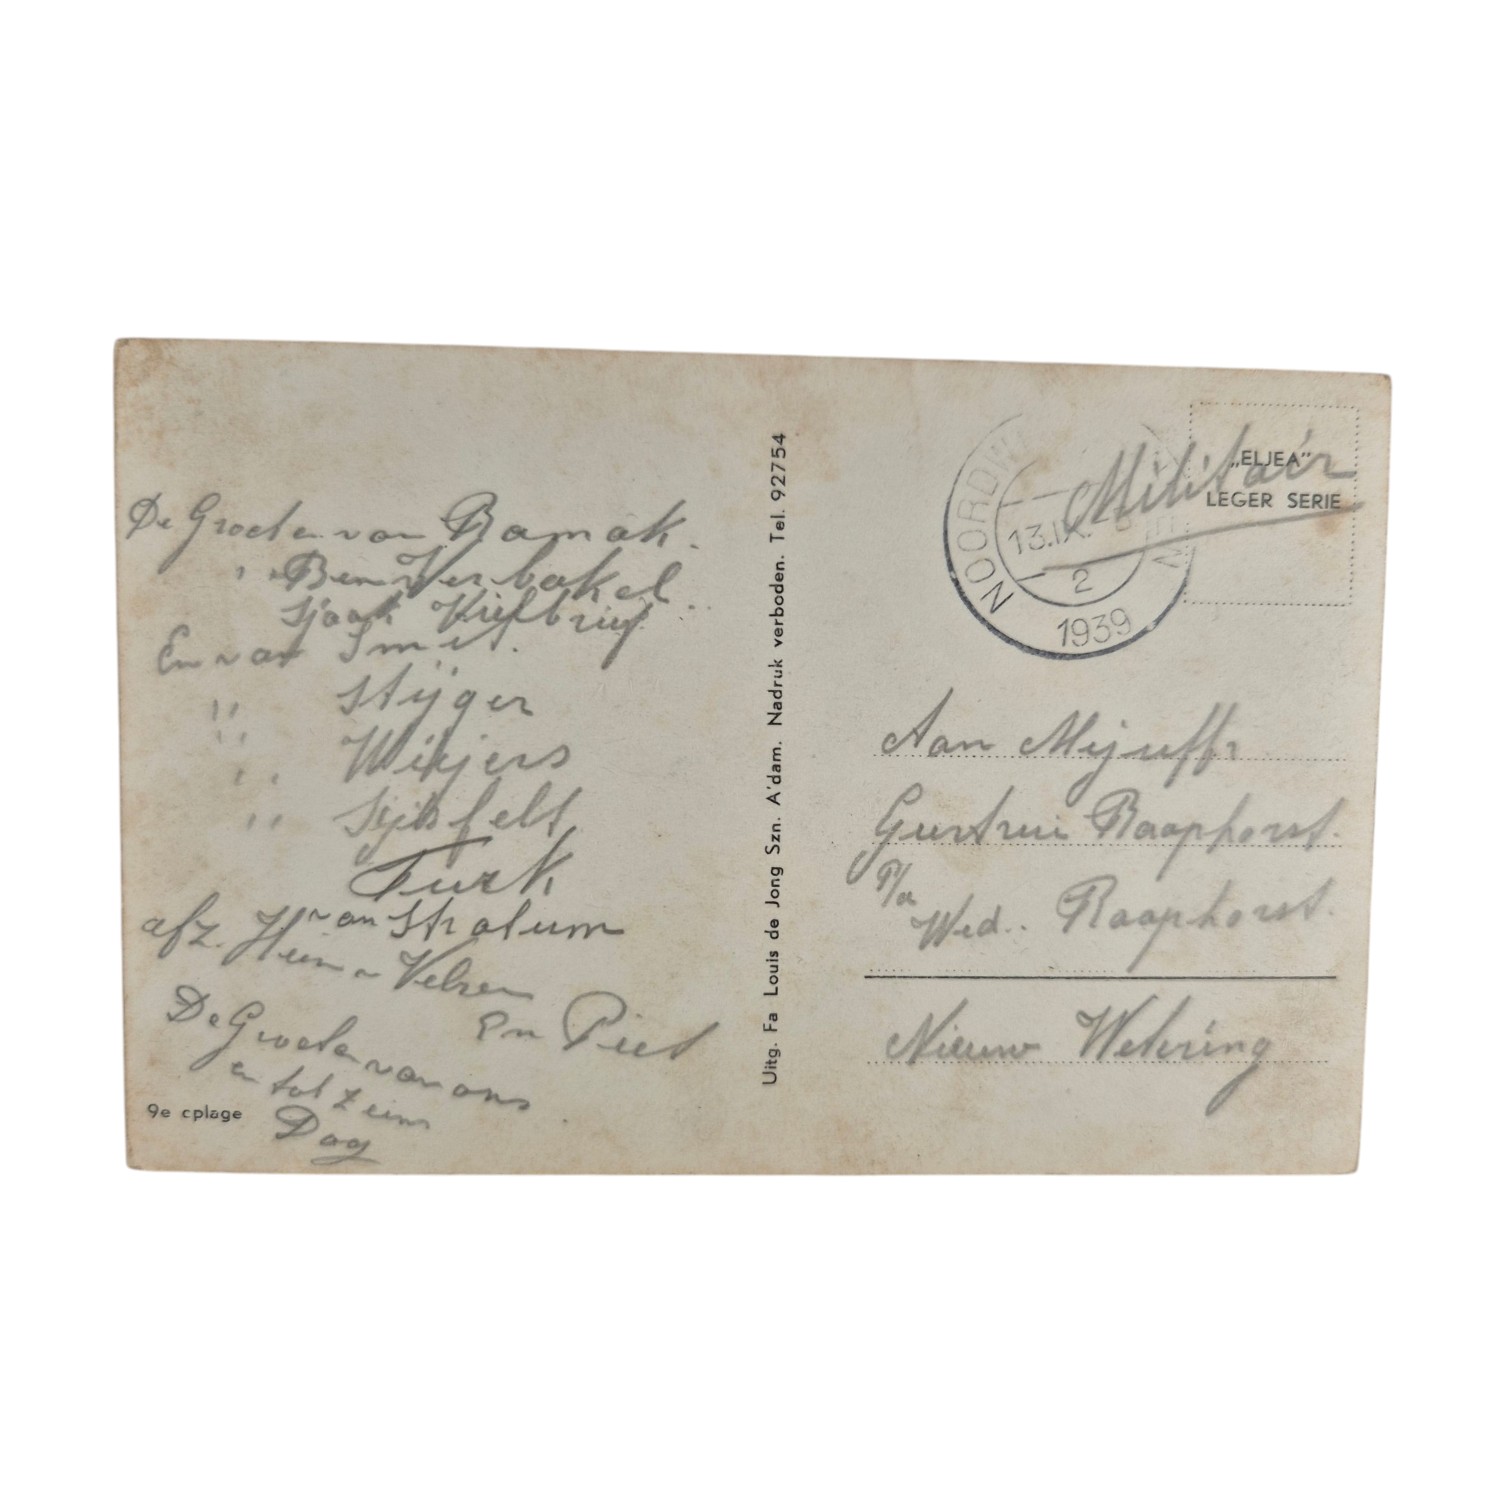 De Groeten van Ramak.
" " Ben Verbakel.
Sjaak
En van Smit.
" Stijger
" Weijers
" Sijtsfelt
Turk
van Stralum
afz. Hein v Velzen
en Piet
De Groeten van ons
en tot ziens
Dag
9e cplage
Uitg. Fa Louis de Jong Szn. A'dam. Nadruk verboden. Tel. 92754
NOORDW
13.IX.
2
1939
Militair
„ELJEA"
LEGER SERIE
Aan Mejuffr
Geertrui Raaphorst.
P/a
Wed. Raaphorst.
Nieuw Wetering